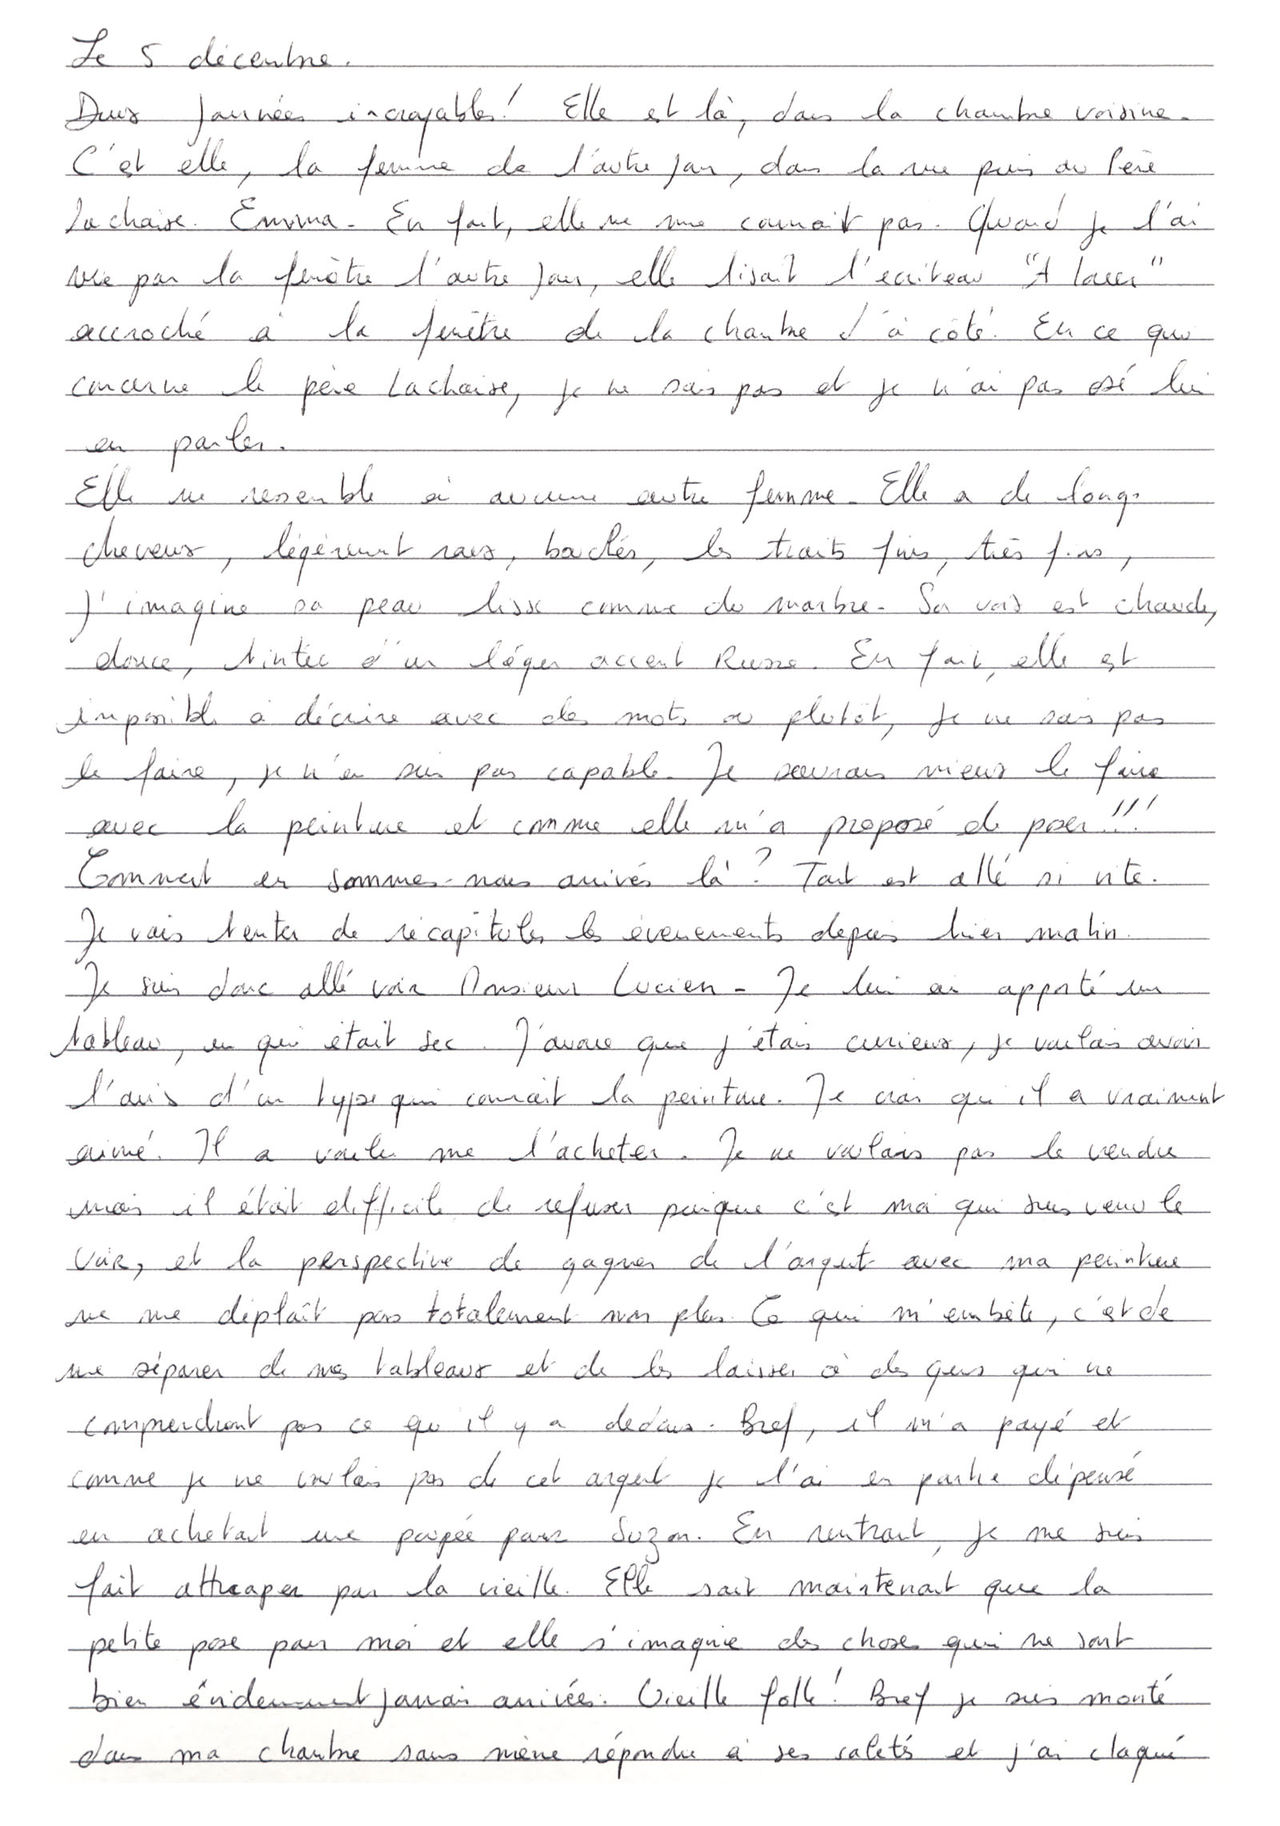 Le 5 décembre.
Deux journées incroyables! Elle est là, dans la chambre voisine.
C'est elle, la femme de l'autre jour, dans la rue puis au Père
Lachaise. Emma. En fait, elle ne me connait pas. Quand je l'ai
vue par la fenêtre l'autre jour, elle lisait l'écriteau "A louer"
accroché à la fenêtre de la chambre d'à côté. En ce qui
concerne le père Lachaise, je ne sais pas et je n'ai pas osé lui
en parler.
Elle ne ressemble à aucune autre femme. Elle a de longs
cheveux, légèrement roux, bouclés, les traits fins, très fins,
j'imagine sa peau lisse comme du marbre. Sa voix est chaude,
douce, teintée d'un léger accent Russe. En fait, elle est
impossible à décrire avec des mots ou plutôt, je ne sais pas
le faire, je n'en suis pas capable. Je saurais mieux le faire
avec la peinture et comme elle m'a proposé de poser!!!
Comment en sommes-nous arrivés là? Tout est allé si vite.
Je vais tenter de récapituler les évenements depuis hier matin.
Je suis donc allé voir Monsieur Lucien. Je lui ai apporté un
tableau, un qui était sec. J'avoue que j'étais curieux, je voulais avoir
l'avis d'un type qui connait la peinture. Je crois qu'il a vraiment
aimé. Il a voulu me l'acheter. Je ne voulais pas le vendre
mais il était difficile de refuser puisque c'est moi qui suis venu le
voir, et la perspective de gagner de l'argent avec ma peinture
ne me déplaît pas totalement non plus. Ce qui m'embête, c'est de
me séparer de mes tableaux et de les laisser à des gens qui ne
comprendront pas ce qu'il y a dedans. Bref, il m'a payé et
comme je ne voulais pas de cet argent je l'ai en partie dépensé
en achetant une poupée pour Suzon. En rentrant, je me suis
fait attraper par la vieille. Elle sait maintenant que la
petite pose pour moi et elle s'imagine des choses qui ne sont
bien évidemment jamais arrivées. Vieille folle! Bref je suis monté
dans ma chambre sans même répondre à ses saletés et j'ai claqué